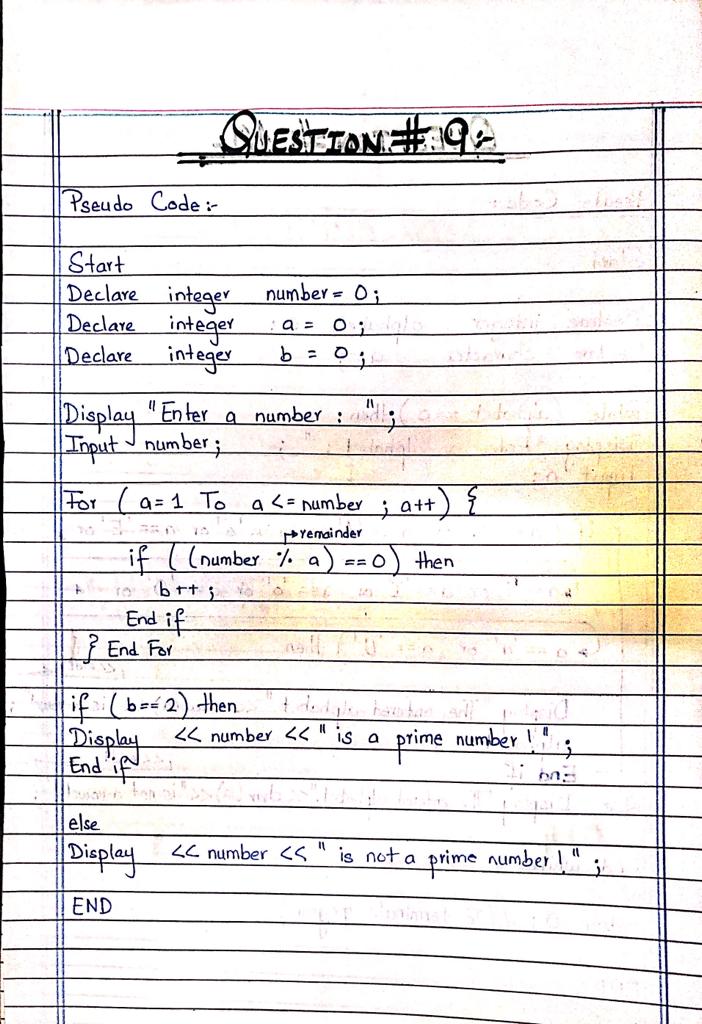 QUESTION # 9:-
Pseudo Code:-
Start
Declare integer number = 0;
Declare integer a = 0;
Declare integer b = 0;
Display "Enter a number : ";
Input number;
For ( a=1 To a <= number ; a++) {
↱remainder
if ( (number % a) ==0) then
b++;
End if
} End For
if ( b==2) then
Display << number << " is a prime number ! " ;
End if
else
Display << number << " is not a prime number ! " ;
END